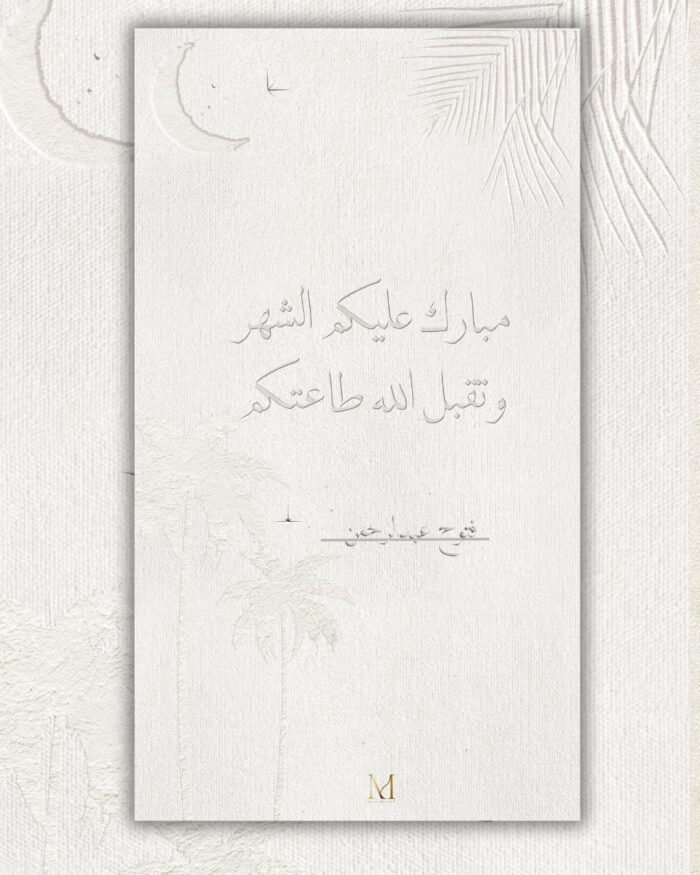 مبارك عليكم الشهر
وتقبل الله طاعتكم
فتوح عبدالرحمن
M